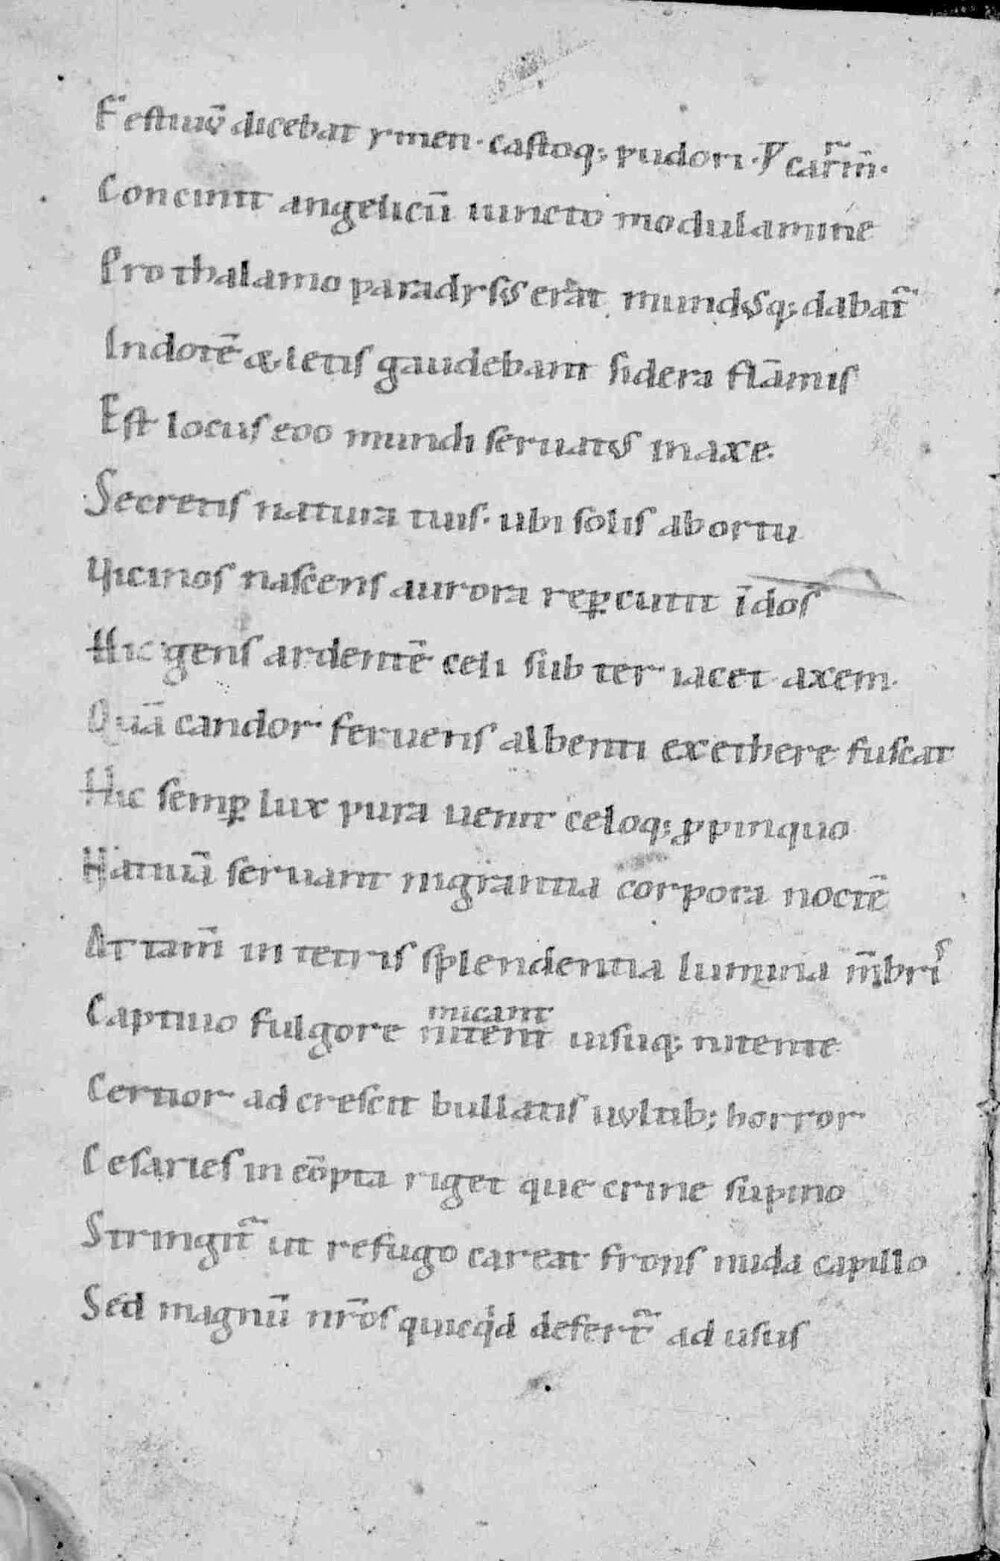 Festiuꝰ dicebat ymen · castoq; pudori · ℣ car̄m̄ ·
Concinit angelicū iuncto modulamine
Pro thalamo paradysꝰ erat mundꝰq; dabat᷑
In dotē & letis gaudebant sidera flāmis
Est locus eoo mundi seruatꝰ in axe ·
Secretis natura tuis · ubi solis ab ortu
Vicinos nascens aurora reꝑcutit īdos
Hic gens ardentē celi sub ter iacet axem ·
Quā candor feruens albenti ex ethere fuscat
Hic semꝑ lux pura uenit celoq; ꝓpinquo
Natiuā seruant nigrantia corpora noctē
At tam̄ in tetris splendentia lumina m̄bris
micant
Captiuo fulgore nitent uisuq; nitente
Certior ad crescit bullatis uultib; horror
Cesaries in cōpta riget que crine supino
Stringit᷑ ut refugo careat frons nuda capillo
Sed magnū nr̄os quicqͥd defert᷑ ad usus